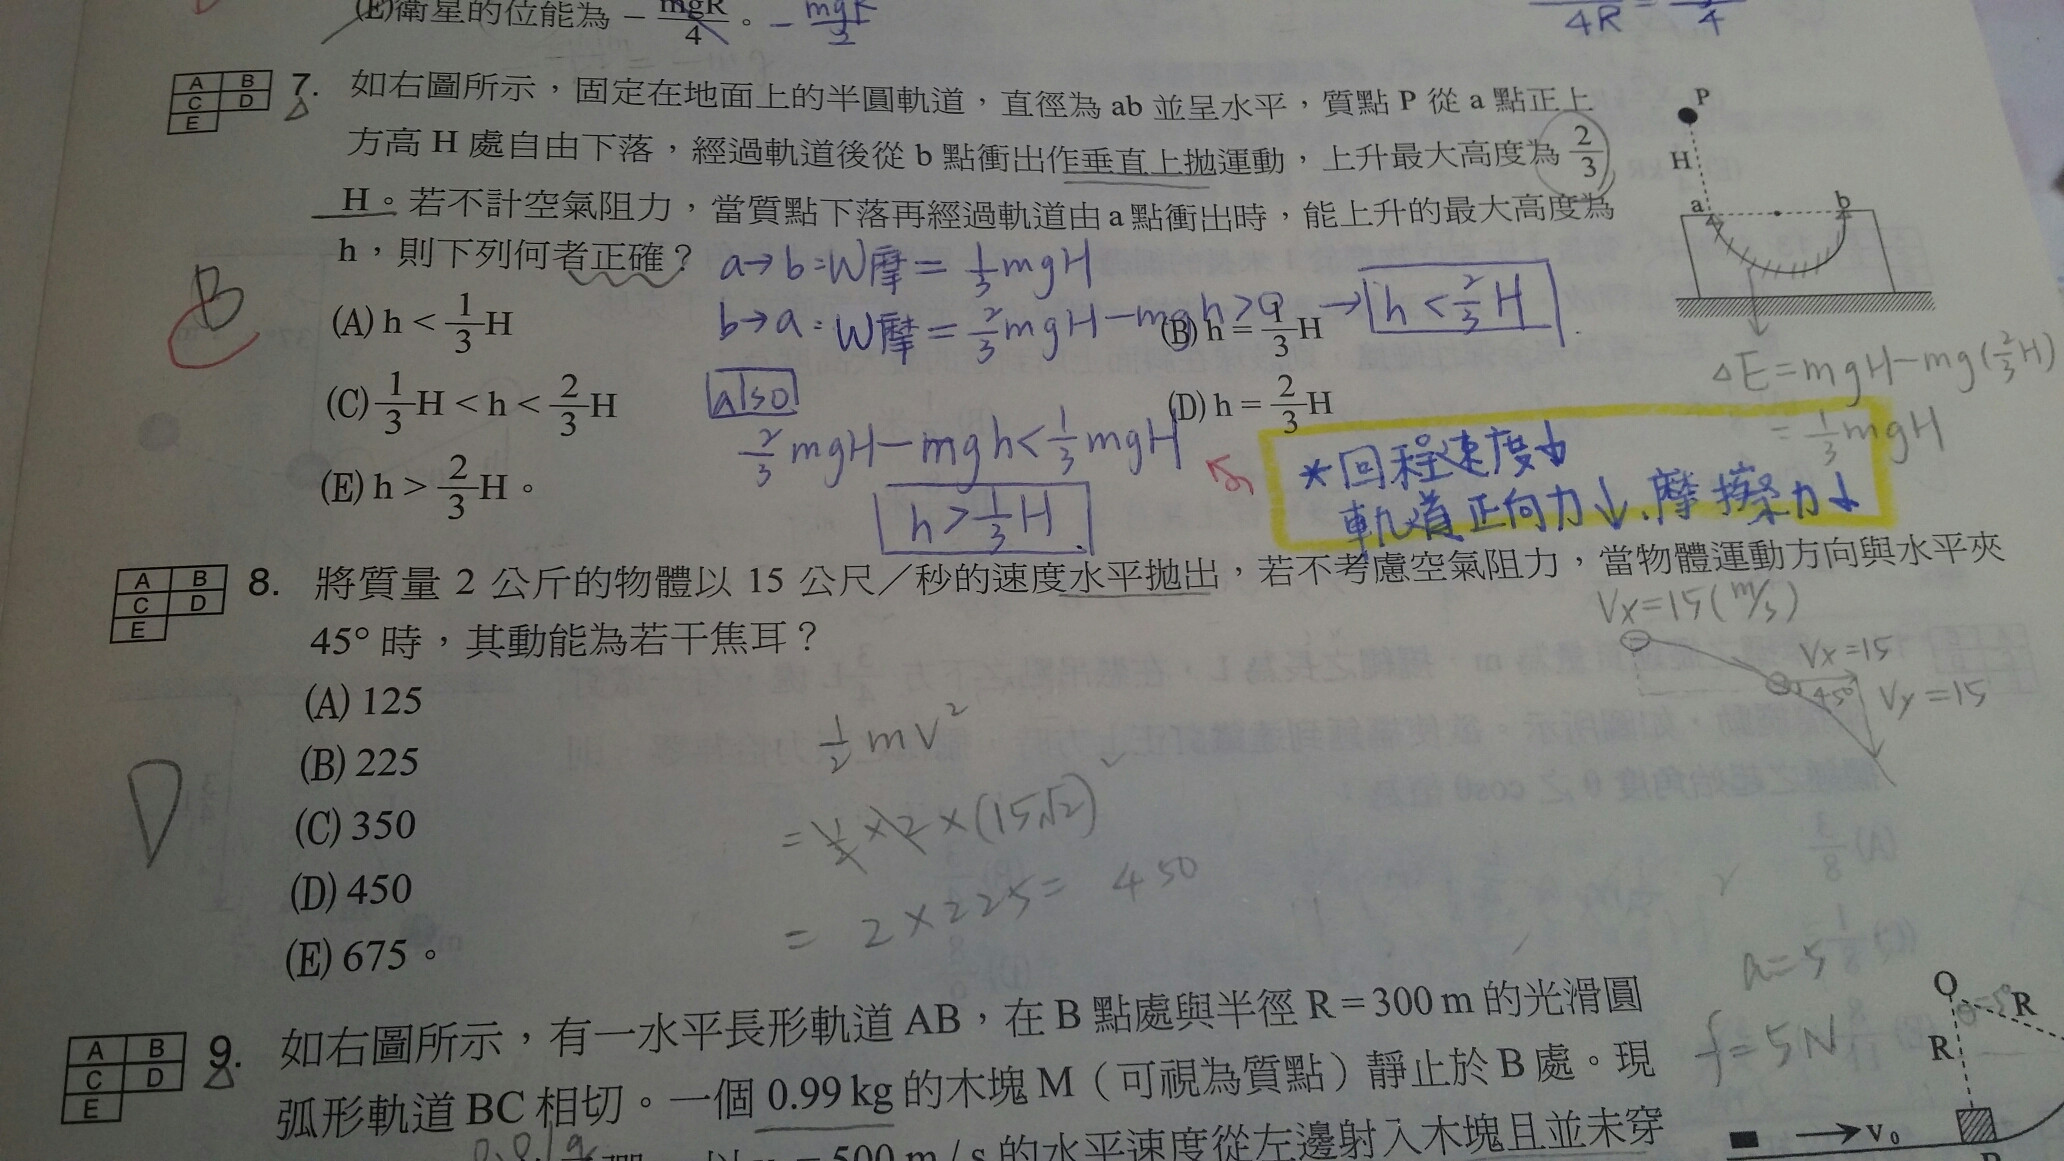 (E)衛星的位能為 − mgR/4 。 − mgR/2
4R = 4
A B C D E 7. 如右圖所示，固定在地面上的半圓軌道，直徑為 ab 並呈水平，質點 P 從 a 點正上
方高 H 處自由下落，經過軌道後從 b 點衝出作垂直上拋運動，上升最大高度為 2/3
H。若不計空氣阻力，當質點下落再經過軌道由 a 點衝出時，能上升的最大高度為
h，則下列何者正確？
a→b：W摩 = 1/3 mgH
b→a：W摩 = 2/3 mgH − mgh > 0 → h < 2/3 H
(A) h < 1/3 H
(B) h = 1/3 H
(C) 1/3 H < h < 2/3 H
(D) h = 2/3 H
(E) h > 2/3 H。
B
C
also
2/3 mgH − mgh < 1/3 mgH
h > 1/3 H
P
H
a
b
ΔE = mgH − mg(2/3 H)
= 1/3 mgH
*回程速度↓
軌道正向力↓、摩擦力↓
A B C D E 8. 將質量 2 公斤的物體以 15 公尺／秒的速度水平拋出，若不考慮空氣阻力，當物體運動方向與水平夾
45° 時，其動能為若干焦耳？
(A) 125
(B) 225
(C) 350
(D) 450
(E) 675。
D
1/2 mV²
= 1/2 × 2 × (15√2)²
= 2×225 = 450
Vx=15(m/s)
Vx=15
45°
Vy=15
A B C D E 9. 如右圖所示，有一水平長形軌道 AB，在 B 點處與半徑 R = 300 m 的光滑圓
弧形軌道 BC 相切。一個 0.99 kg 的木塊 M（可視為質點）靜止於 B 處。現
500 m / s 的水平速度從左邊射入木塊且並未穿
a=5
f=5N
O
θ=5°
R
R
v₀